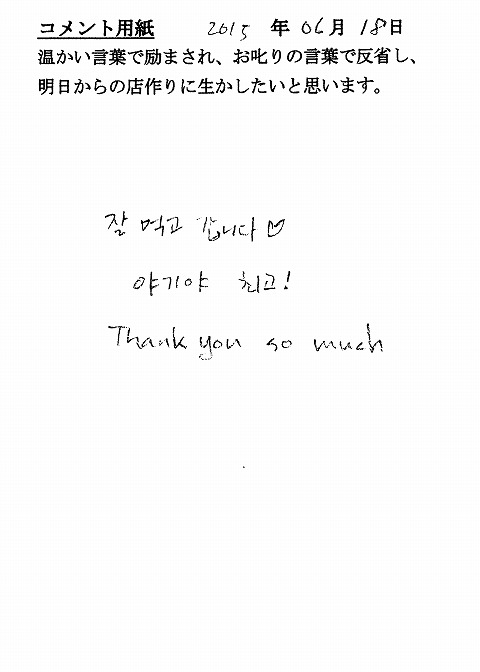 コメント用紙 2015 年 06 月 18 日
温かい言葉で励まされ、お叱りの言葉で反省し、
明日からの店作りに生かしたいと思います。
잘 먹고 갑니다♡
야기야 최고!
Thank you so much